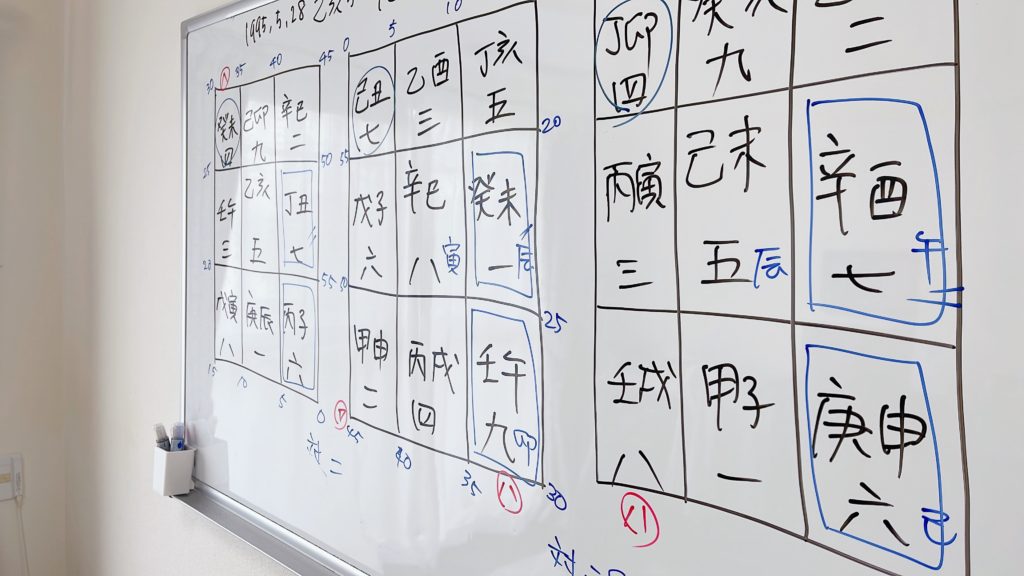 1995.5.28 乙亥
30 35 40 45
癸未 己卯 辛巳
四 九 二
25 50
壬午 乙亥 丁丑
三 五 七
20 55
戊寅 庚辰 丙子
八 一 六
15 10 5 0
対二
0 5 10
己丑 乙酉 丁亥
七 三 五
55 20
戊子 辛巳 癸未
六 八 寅 一 辰
50 25
甲申 丙戌 壬午
二 四 九 卯
45 40 35 30
八
丁卯
四 九 二
丙寅 己未 辛酉
三 五 辰 七 午
壬戌 甲子 庚申
八 一 六 巳
対